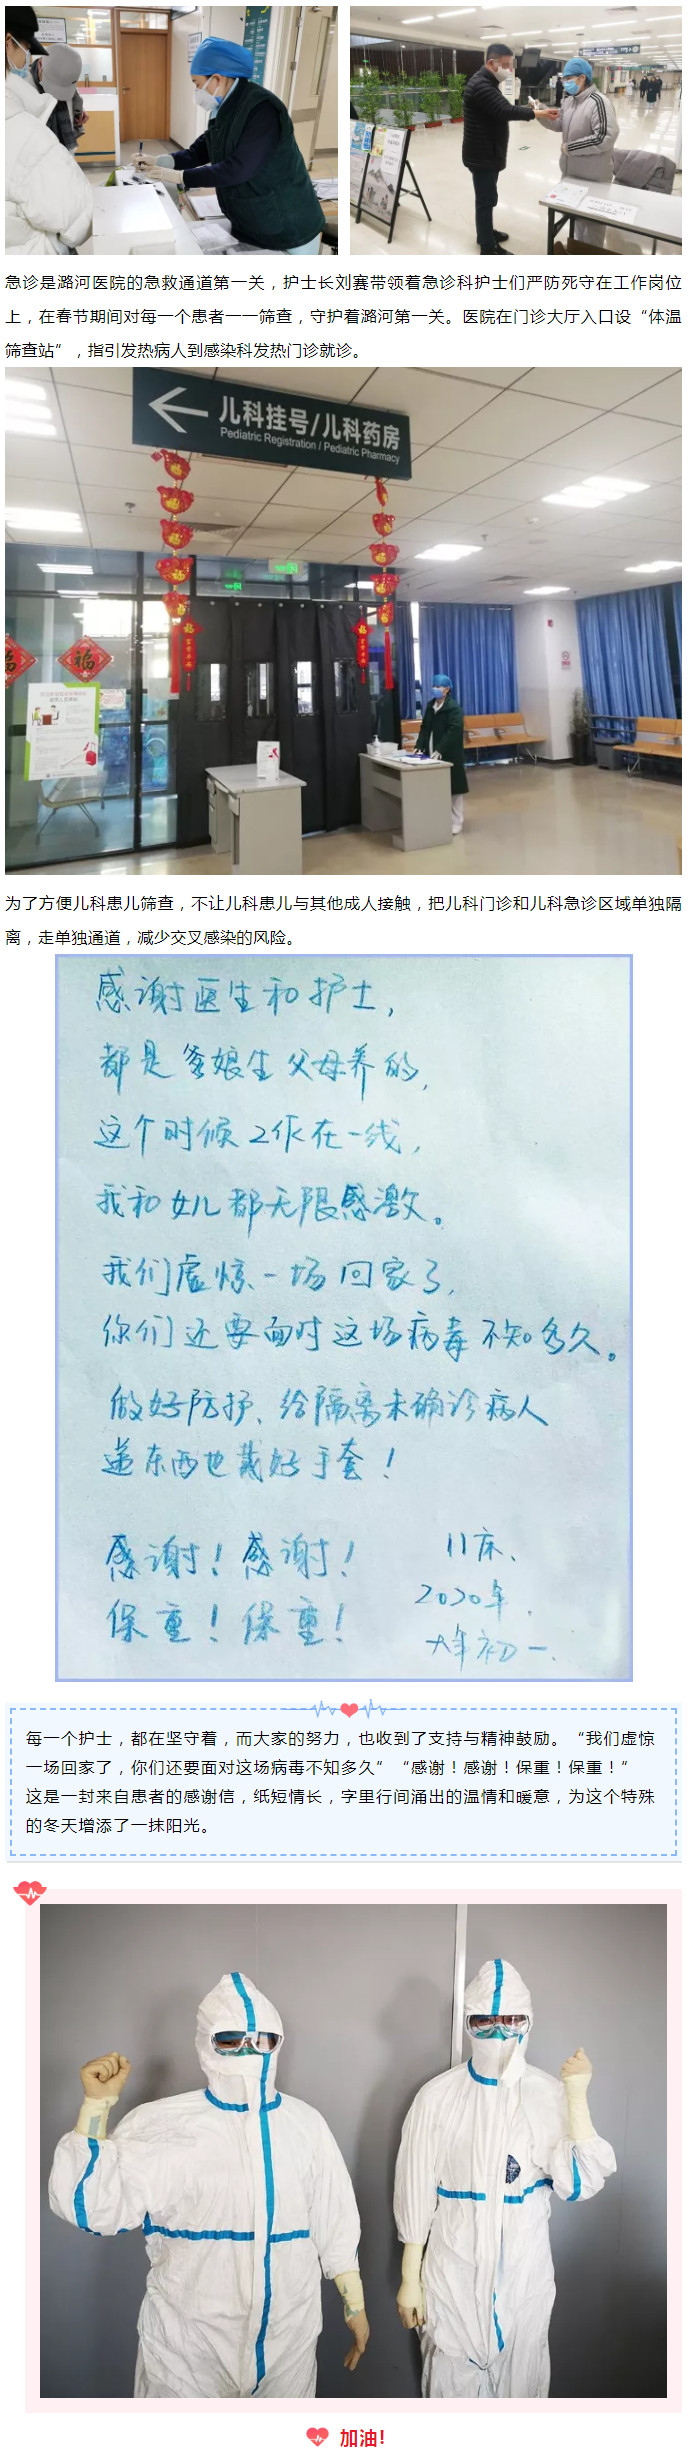 急诊是潞河医院的急救通道第一关，护士长刘赛带领着急诊科护士们严防死守在工作岗位
上，在春节期间对每一个患者一一筛查，守护着潞河第一关。医院在门诊大厅入口设“体温
筛查站”，指引发热病人到感染科发热门诊就诊。
儿科挂号/儿科药房
Pediatric Registration / Pediatric Pharmacy
福
福
为了方便儿科患儿筛查，不让儿科患儿与其他成人接触，把儿科门诊和儿科急诊区域单独隔
离，走单独通道，减少交叉感染的风险。
感谢医生和护士，
都是爹娘生父母养的，
这个时候工作在一线，
我和女儿都无限感激。
我们虚惊一场回家了，
你们还要面对这场病毒不知多久。
做好防护、给隔离未确诊病人
递东西也戴好手套！
感谢！感谢！
保重！保重！
11床、
2020年.
大年初一.
每一个护士，都在坚守着，而大家的努力，也收到了支持与精神鼓励。“我们虚惊
一场回家了，你们还要面对这场病毒不知多久”“感谢！感谢！保重！保重！”
这是一封来自患者的感谢信，纸短情长，字里行间涌出的温情和暖意，为这个特殊
的冬天增添了一抹阳光。
加油!